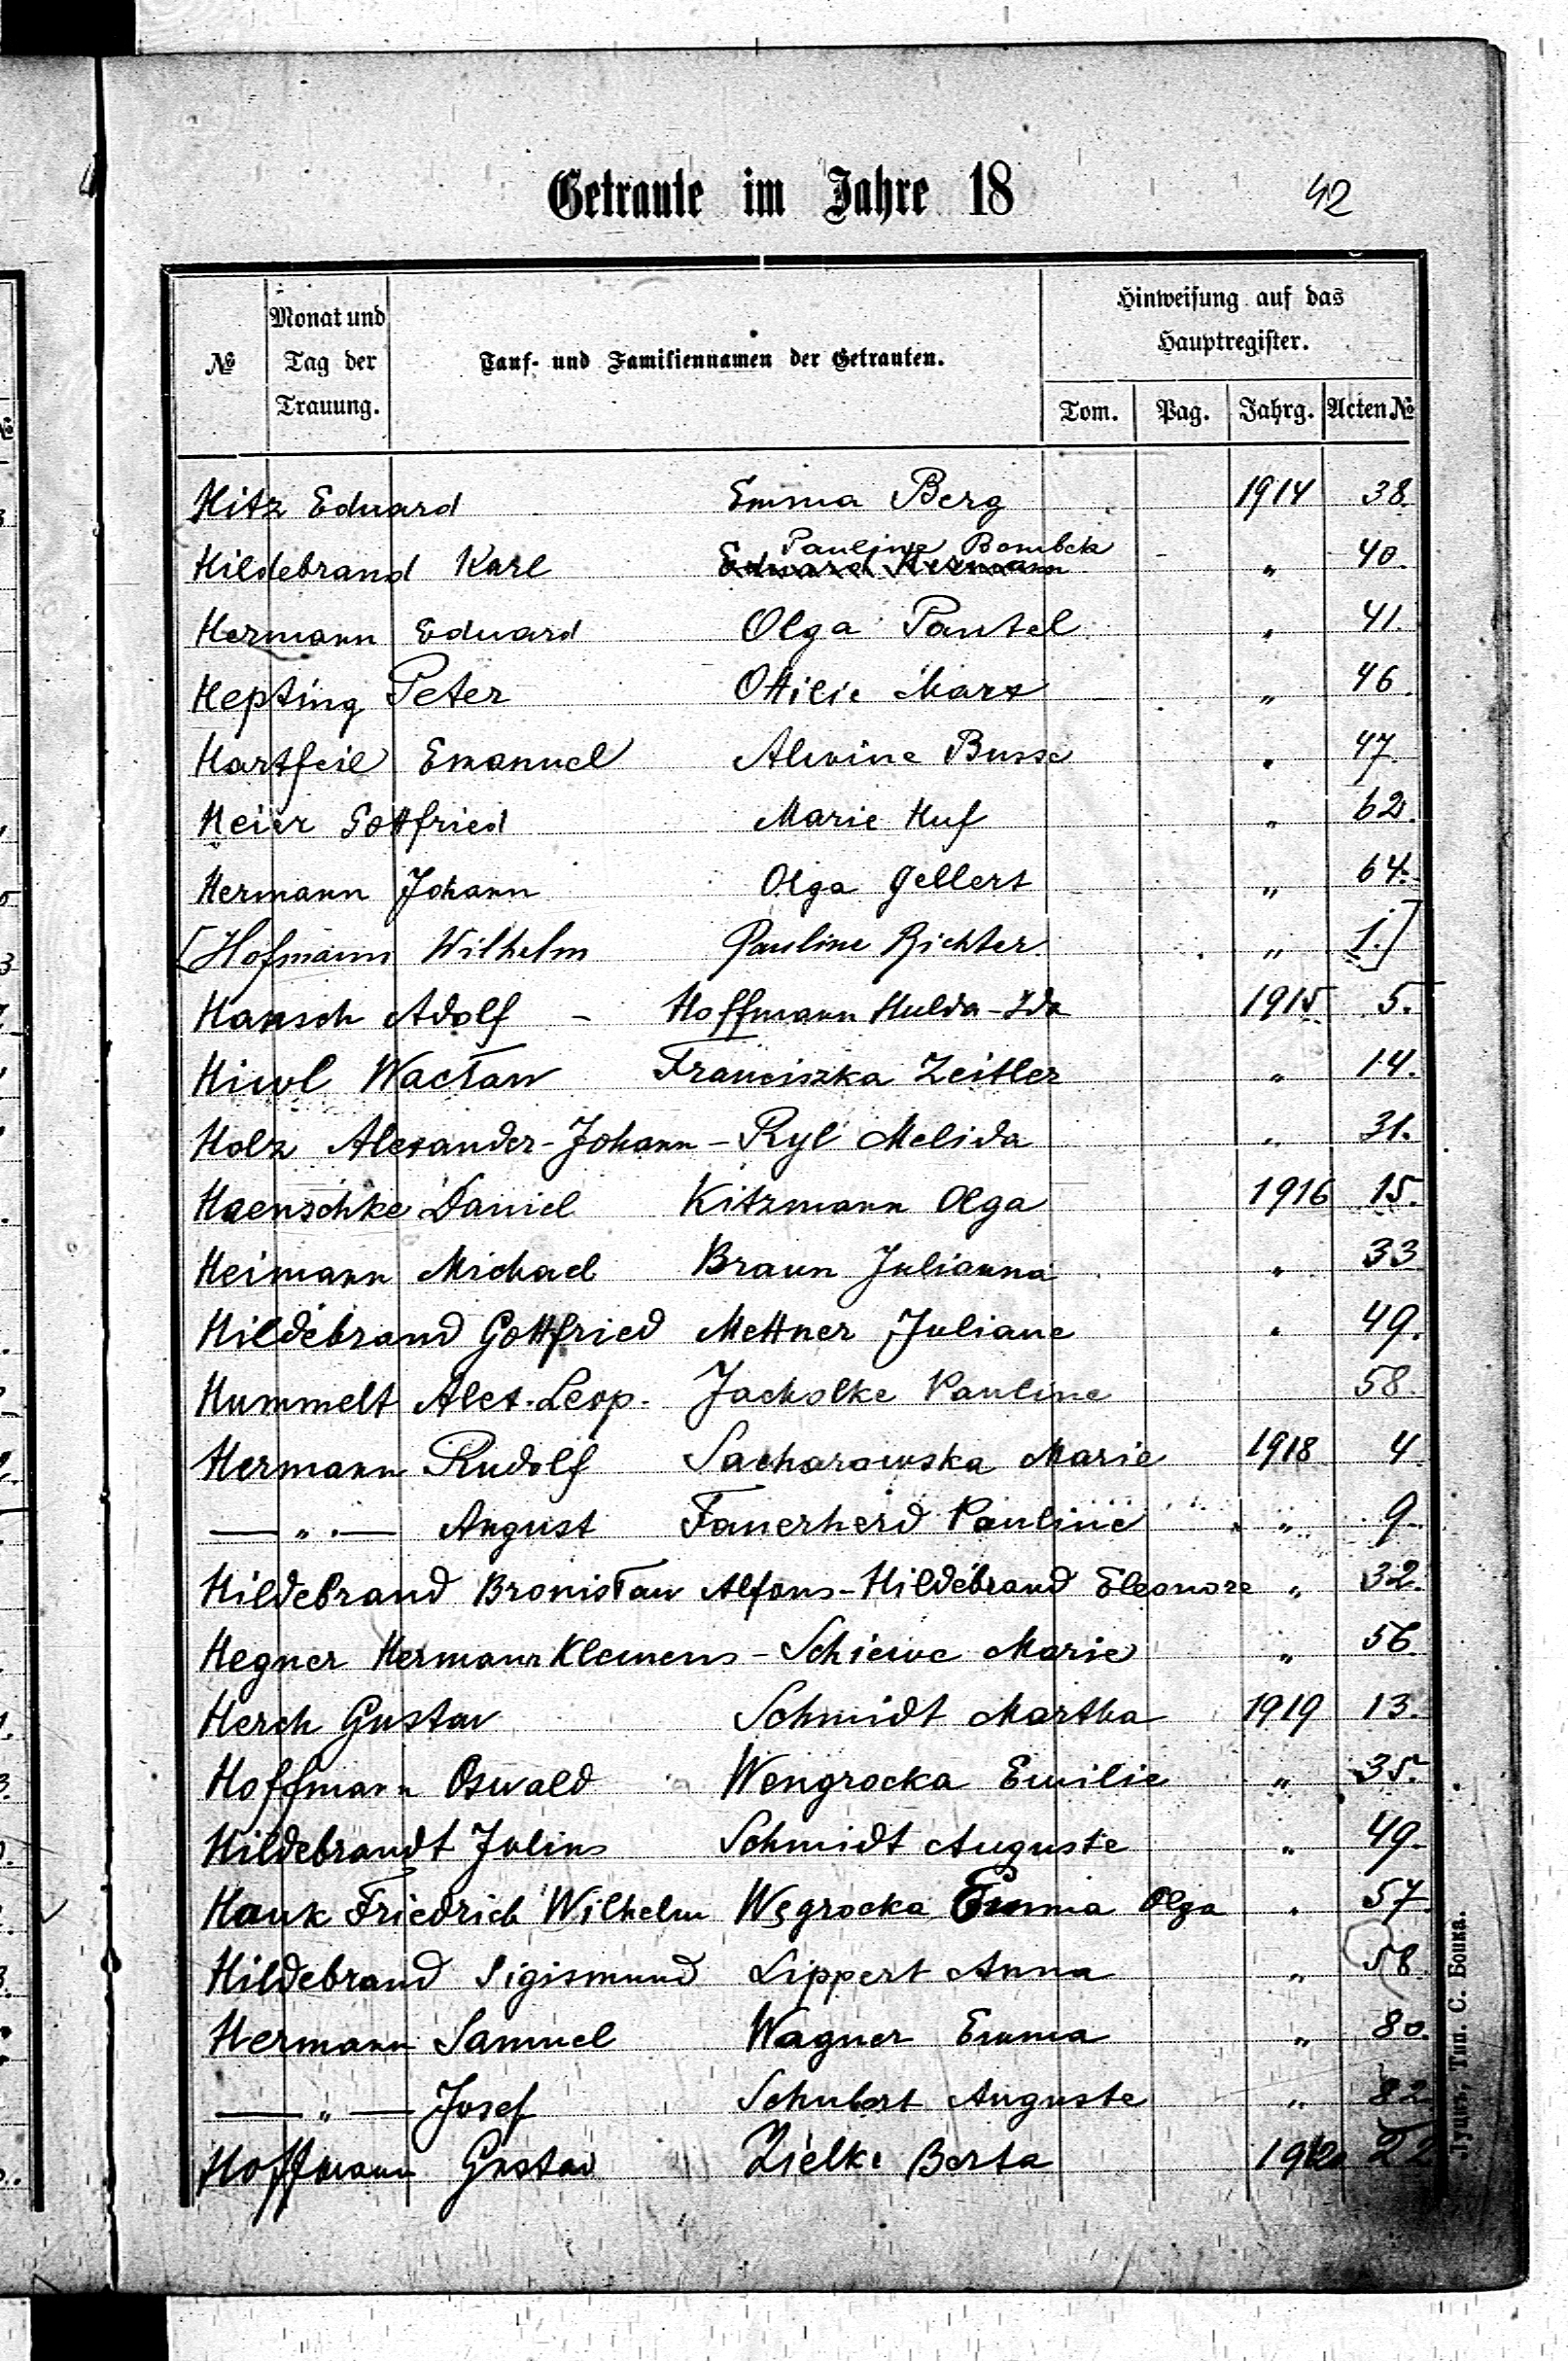 Getraute im Jahre 18 42
№ Monat und Tag der Trauung. Tauf- und Familiennamen der Getrauten. Hinweisung auf das Hauptregister.
Tom. Pag. Jahrg. Acten №
Hitz Eduard Emma Berg 1914 38.
Pauline Bombek
Hildebrand Karl Eduard Hermann " 40.
Hermann Eduard Olga Pantel " 41.
Hepting Peter Ottilie Marx " 46.
Hartfeil Emanuel Alwine Busse " 47.
Heier Gottfried Marie Huf " 62.
Hermann Johann Olga Gellert " 64.
[Hofmann Wilhelm Pauline Richter " 1.]
Hansch Adolf - Hoffmann Hulda-Ida 1915 5.
Hiwl Wacław Franciszka Zeitler " 14.
Holz Alexander-Johann - Ryl Melida " 31.
Haenschke Daniel Kitzmann Olga 1916 15.
Heimann Michael Braun Julianna " 33
Hildebrand Gottfried Mettner Juliane " 49.
Hummelt Alex. Leop. Jacholke Pauline 58.
Hermann Rudolf Sacharowska Marie 1918 4
— " — August Fauerherd Pauline " 9.
Hildebrand Bronisław Alfons - Hildebrand Eleonore " 32.
Hegner Hermann Klemens - Schiewe Marie " 56.
Herch Gustav Schmidt Martha 1919 13.
Hoffmann Oswald Wengrocka Emilie " 35.
Hildebrandt Julius Schmidt Auguste " 49.
Hauk Friedrich Wilhelm Węgrocka Emma Olga " 57.
Hildebrand Sigismund Lippert Anna " 58.
Hermann Samuel Wagner Emma " 80.
— " — Josef Schubert Auguste " 82.
Hoffmann Gustav Zielke Berta 22
Луцкъ, Тип. С. Бонка.